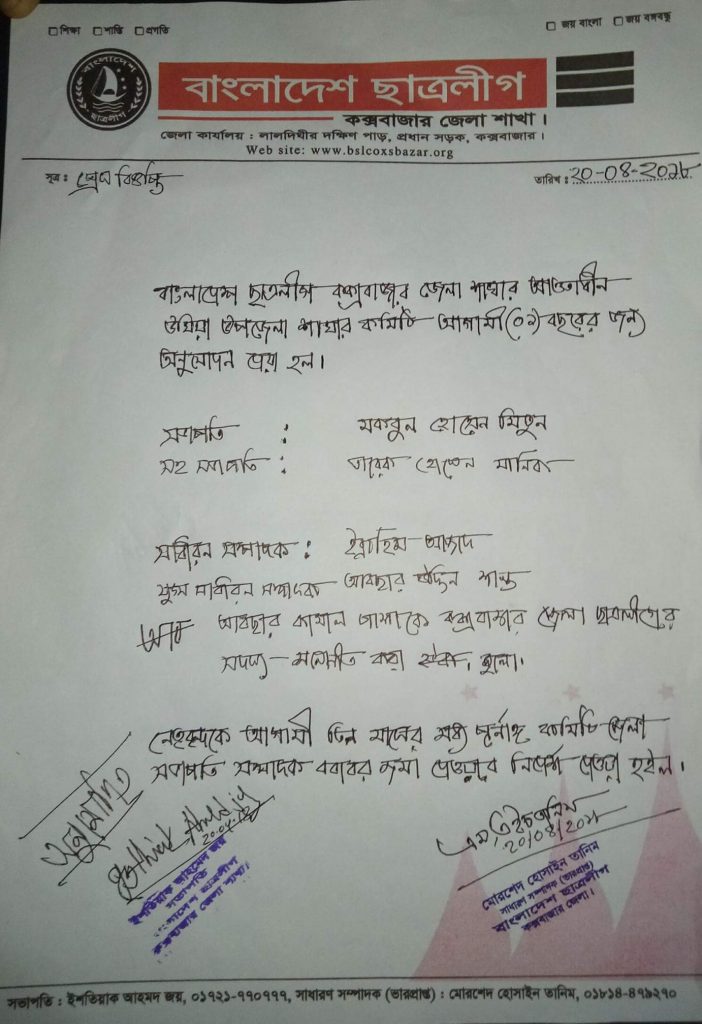 শিক্ষা শান্তি প্রগতি
জয় বাংলা জয় বঙ্গবন্ধু
বাংলাদেশ
ছাত্রলীগ
বাংলাদেশ ছাত্রলীগ
কক্সবাজার জেলা শাখা।
জেলা কার্যালয় : লালদিঘীর দক্ষিণ পাড়, প্রধান সড়ক, কক্সবাজার।
Web site: www.bslcoxsbazar.org
সূত্র : প্রেস বিজ্ঞপ্তি
তারিখ : ২০-০৪-২০১৮
বাংলাদেশ ছাত্রলীগ কক্সবাজার জেলা শাখার আওতাধীন
উখিয়া উপজেলা শাখার কমিটি আগামী (০১) বছরের জন্য
অনুমোদন দেয়া হল।
সভাপতি : মকবুল হোসেন মিতুন
সহ সভাপতি : তারেক হোসেন মানিক
সাধারন সম্পাদক : ইব্রাহিম আজাদ
যুগ্ম সাধারন সম্পাদক আবছার উদ্দিন শান্ত
আবছার কামাল পাশাকে কক্সবাজার জেলা ছাত্রলীগের
সদস্য মনোনীত করা হলো।
নেতৃবৃন্দকে আগামী তিন মাসের মধ্যে পূর্নাঙ্গ কমিটি জেলা
সভাপতি সম্পাদক বরাবর জমা দেওয়ার নির্দেশ দেওয়া হইল।
অনুমোদিত
20.04.18
ইশতিয়াক আহমেদ জয়
সভাপতি
বাংলাদেশ ছাত্রলীগ
কক্সবাজার জেলা শাখা।
২০/০৪/২০১৮
মোরশেদ হোসাইন তানিম
সাধারণ সম্পাদক (ভারপ্রাপ্ত)
বাংলাদেশ ছাত্রলীগ
কক্সবাজার জেলা।
সভাপতি : ইশতিয়াক আহমদ জয়, ০১৭২১-৭৭০৭৭৭, সাধারণ সম্পাদক (ভারপ্রাপ্ত) : মোরশেদ হোসাইন তানিম, ০১৮১৪-৪৭৯২৭০